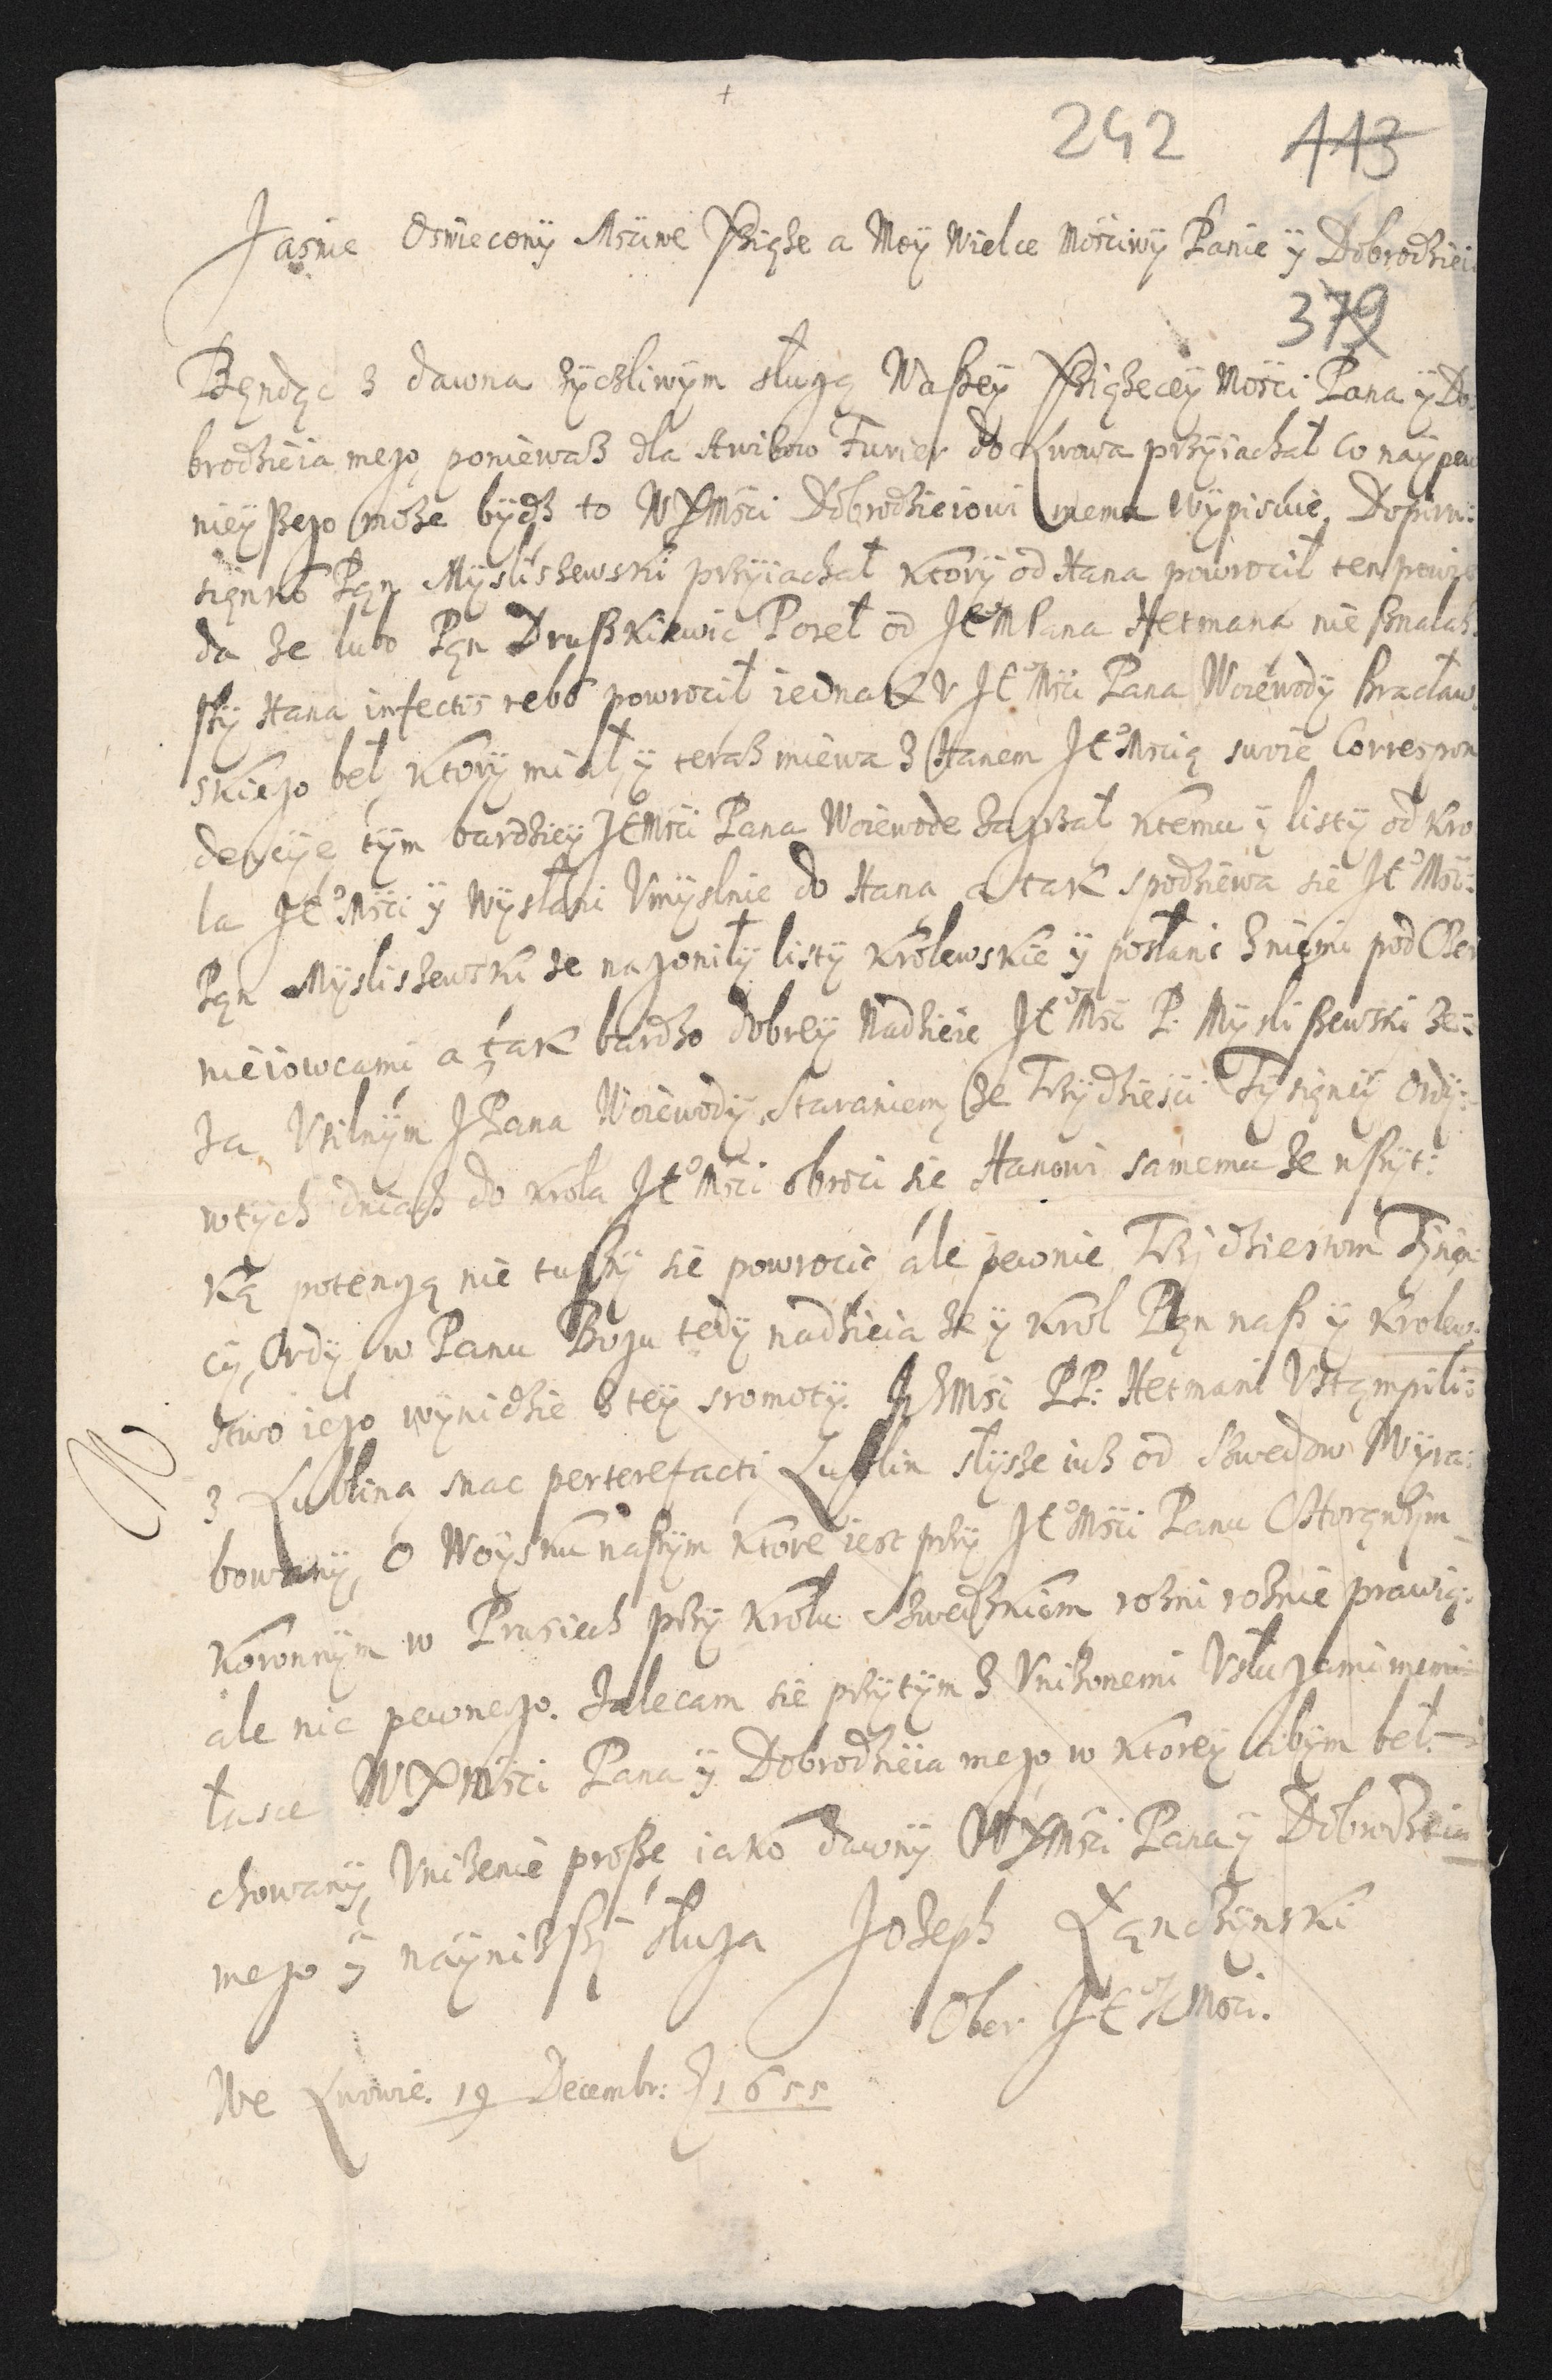 242 113
Jasnie Oswiecony Msciwe Xiąże a Moÿ Wielce Mosciwÿ Panie ÿ Dobrodzieiu
379
Będąc z dawna zÿczliwÿm sługą Waszeÿ Xiążeceÿ Mosci Pana ÿ Do
brodzieia mego poniewasz dla Awizow Furier do Lwowa przÿiachał co naÿpew
nieÿszego może bÿdz to WXMsci Dobrodzieiowi memu wÿpisuie. Dopiru:
sienko Pąn Mÿsliszewski przÿiachał ktorÿ od Hana powrocił ten powie
da że lubo Pąn Druszkiewic Poseł od Je° M Pana Hetmana nie znalaz
szÿ Hana infectis rebs powrocił iednak v Je° Msci Pana Woiewodÿ Bracław
skiego beł ktorÿ miał ÿ teraz miewa z Hanem Je° Mscią swoie Correspon
dencÿie tÿm bardzieÿ Je° Msci Pana Woiewode zagrzał ktemu ÿ listÿ od Kro
la Je° Msci ÿ Wÿsłani Vmÿslnie do Hana a tak spodziewa sie Je° Msc:
Pąn Mÿsliszewski że nagoniłÿ listÿ Krolewskie ÿ posłanie z niemi pod Cher
nieiowcami a tak bardzo dobreÿ Nadzieie Je° Msc P. Mÿsliszewski że:
za Vsilnÿm JPana Woiewodÿ Staraniem że Trzÿdziesci Tÿsięncÿ Ordÿ:
wtÿch dniach do Krola Je° Msci obroci sie Hanowi samemu ze wszÿt:
ką potengą nie tuszÿ sie powrocic ale pewnie Trzÿdziestom Tÿsię
cÿ Ordÿ, w Panu Bogu tedÿ nadzieia że ÿ Krol Pąn nasz ÿ Krolew:
stwo iego wÿnidzie z teÿ sromotÿ. Ich Msc PP: Hetmani Vstąmpili:
z Lublina snac perterefacti Lublin słÿsze iuz od Szwedow Wÿra:
bowanÿ, O Woÿsku naszÿm ktore iest przÿ Je° Msci Panu Chorążÿm
Koronnÿm w Prusiech przÿ Krolu Szwedzkiem rozni roznie prawią:
ale nic pewnego. Zalecam sie przÿtÿm z Vnizonemi Vsługami memi
łasce WXMsci Pana ÿ Dobrodzieia mego w ktoreÿ abÿm beł
chowanÿ, Vnizenie prosze iako dawnÿ WXMsci Pana ÿ Dobrodzieia
mego ÿ naÿnizszÿ sługa Jozeph Łąnczÿnski
Ober. Je° K Msci.
We Lwowie. 19 Decembr: 1655